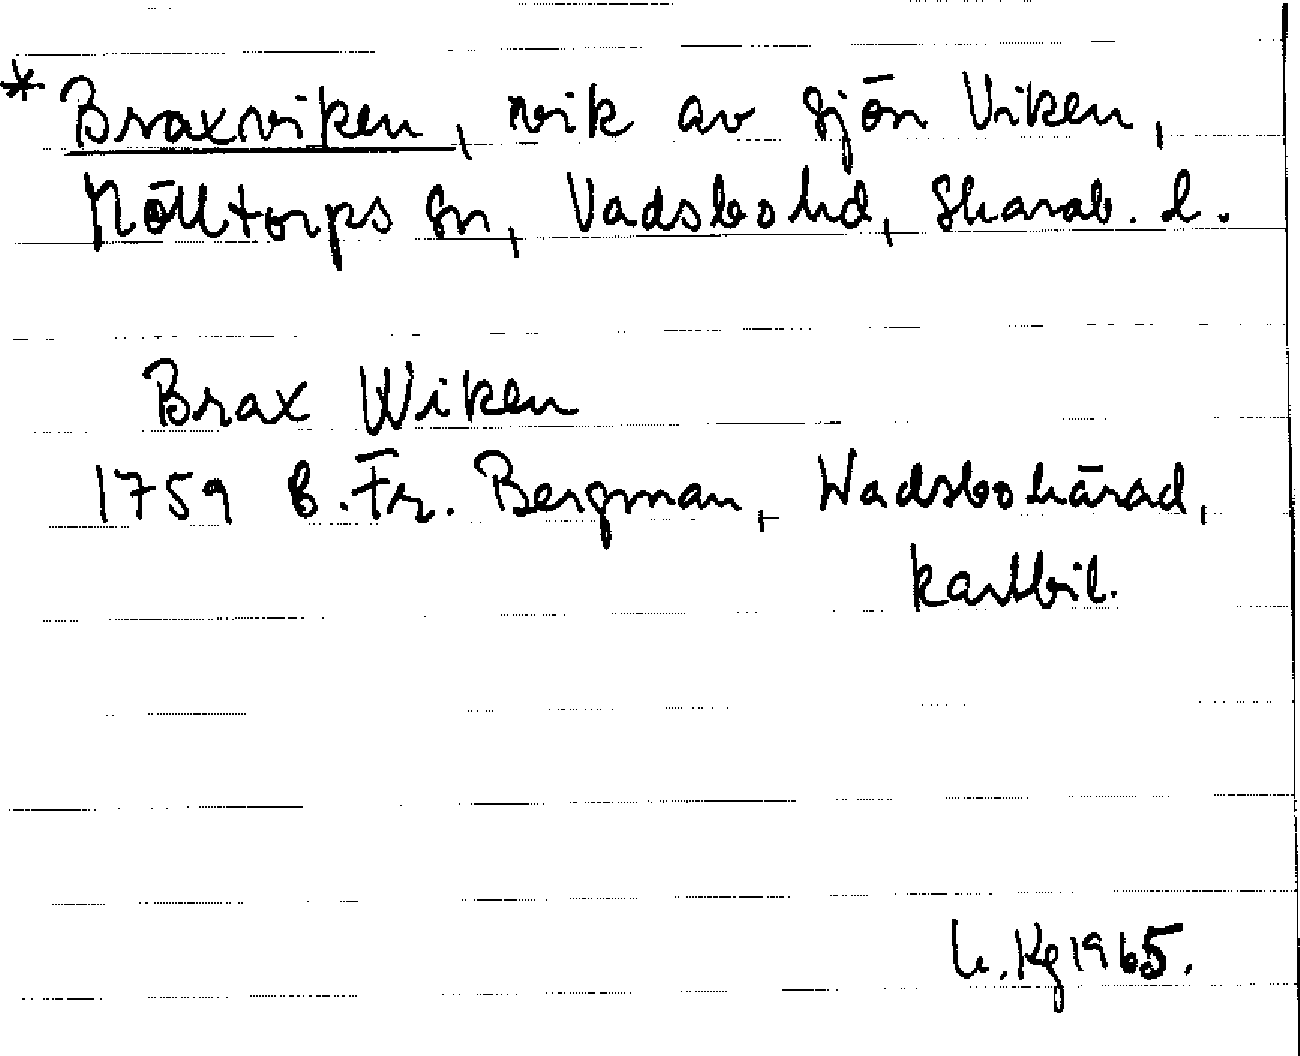 * Braxviken, vik av sjön Viken,
Mölltorps sn, Vadsbo hd, Skarab. l.
Brax Wiken
1759 B. Fr. Bergman, Wadsbo härad,
kartbil.
Kg 1965.